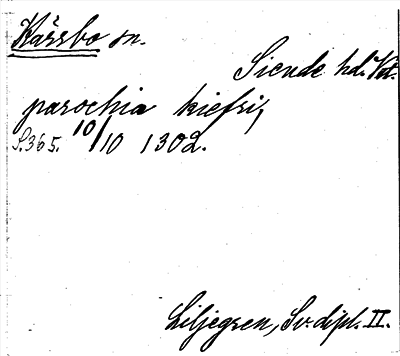 Kärrbo sn.
Siende hd. Vst.
parochia kiefri,
S. 365. 10/10 1302.
Liljegren, Sv. dipl. II.